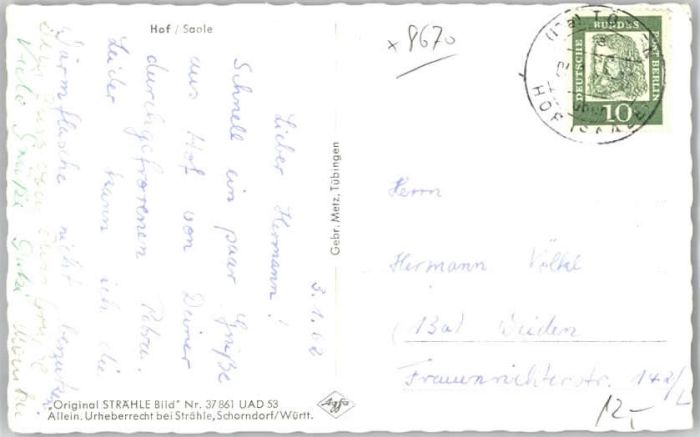 Hof / Saale
x 8670
DEUTSCHE BUNDESPOST BERLIN
10
HOF (SAALE)
3.1.62
Lieber Hermann!
Schnell ein paar Grüße
aus Hof von Deiner
durchgefrorenen
Leider kann ich die
Wärmflasche nicht benutzen
Viele
Gebr. Metz, Tübingen
Herrn
Hermann Völkl
(13a) Weiden
Frauenrichterstr. 142/L
12,-
Agfa
„Original STRÄHLE Bild" Nr. 37861 UAD 53
Allein. Urheberrecht bei Strähle, Schorndorf/Württ.